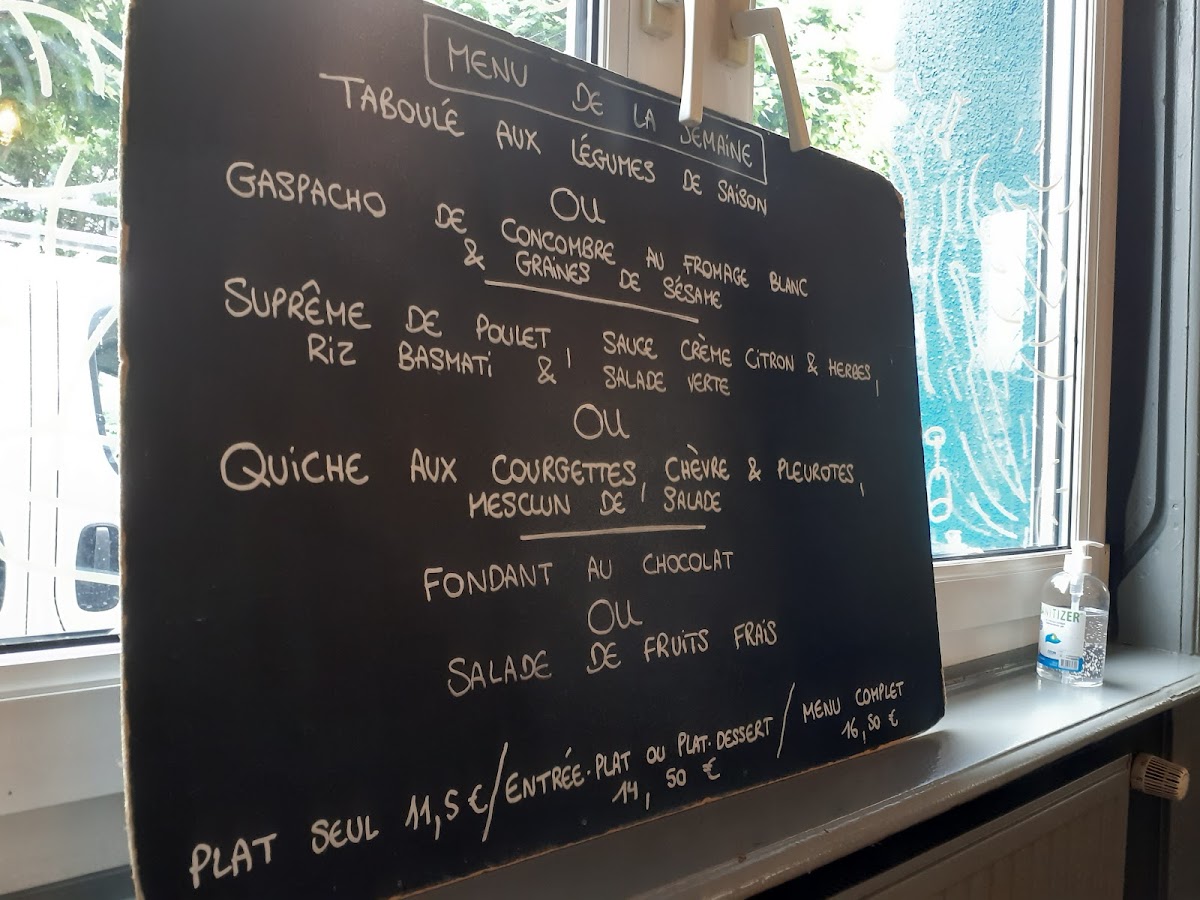 MENU DE LA SEMAINE
TABOULÉ AUX LÉGUMES DE SAISON
OU
GASPACHO DE CONCOMBRE AU FROMAGE BLANC
& GRAINES DE SÉSAME
SUPRÊME DE POULET, SAUCE CRÈME CITRON & HERBES,
RIZ BASMATI & SALADE VERTE
OU
QUICHE AUX COURGETTES, CHÈVRE & PLEUROTES,
MESCLUN DE SALADE
FONDANT AU CHOCOLAT
OU
SALADE DE FRUITS FRAIS
PLAT SEUL 11,5 € / ENTRÉE-PLAT OU PLAT-DESSERT / MENU COMPLET
14,50 € 16,50 €